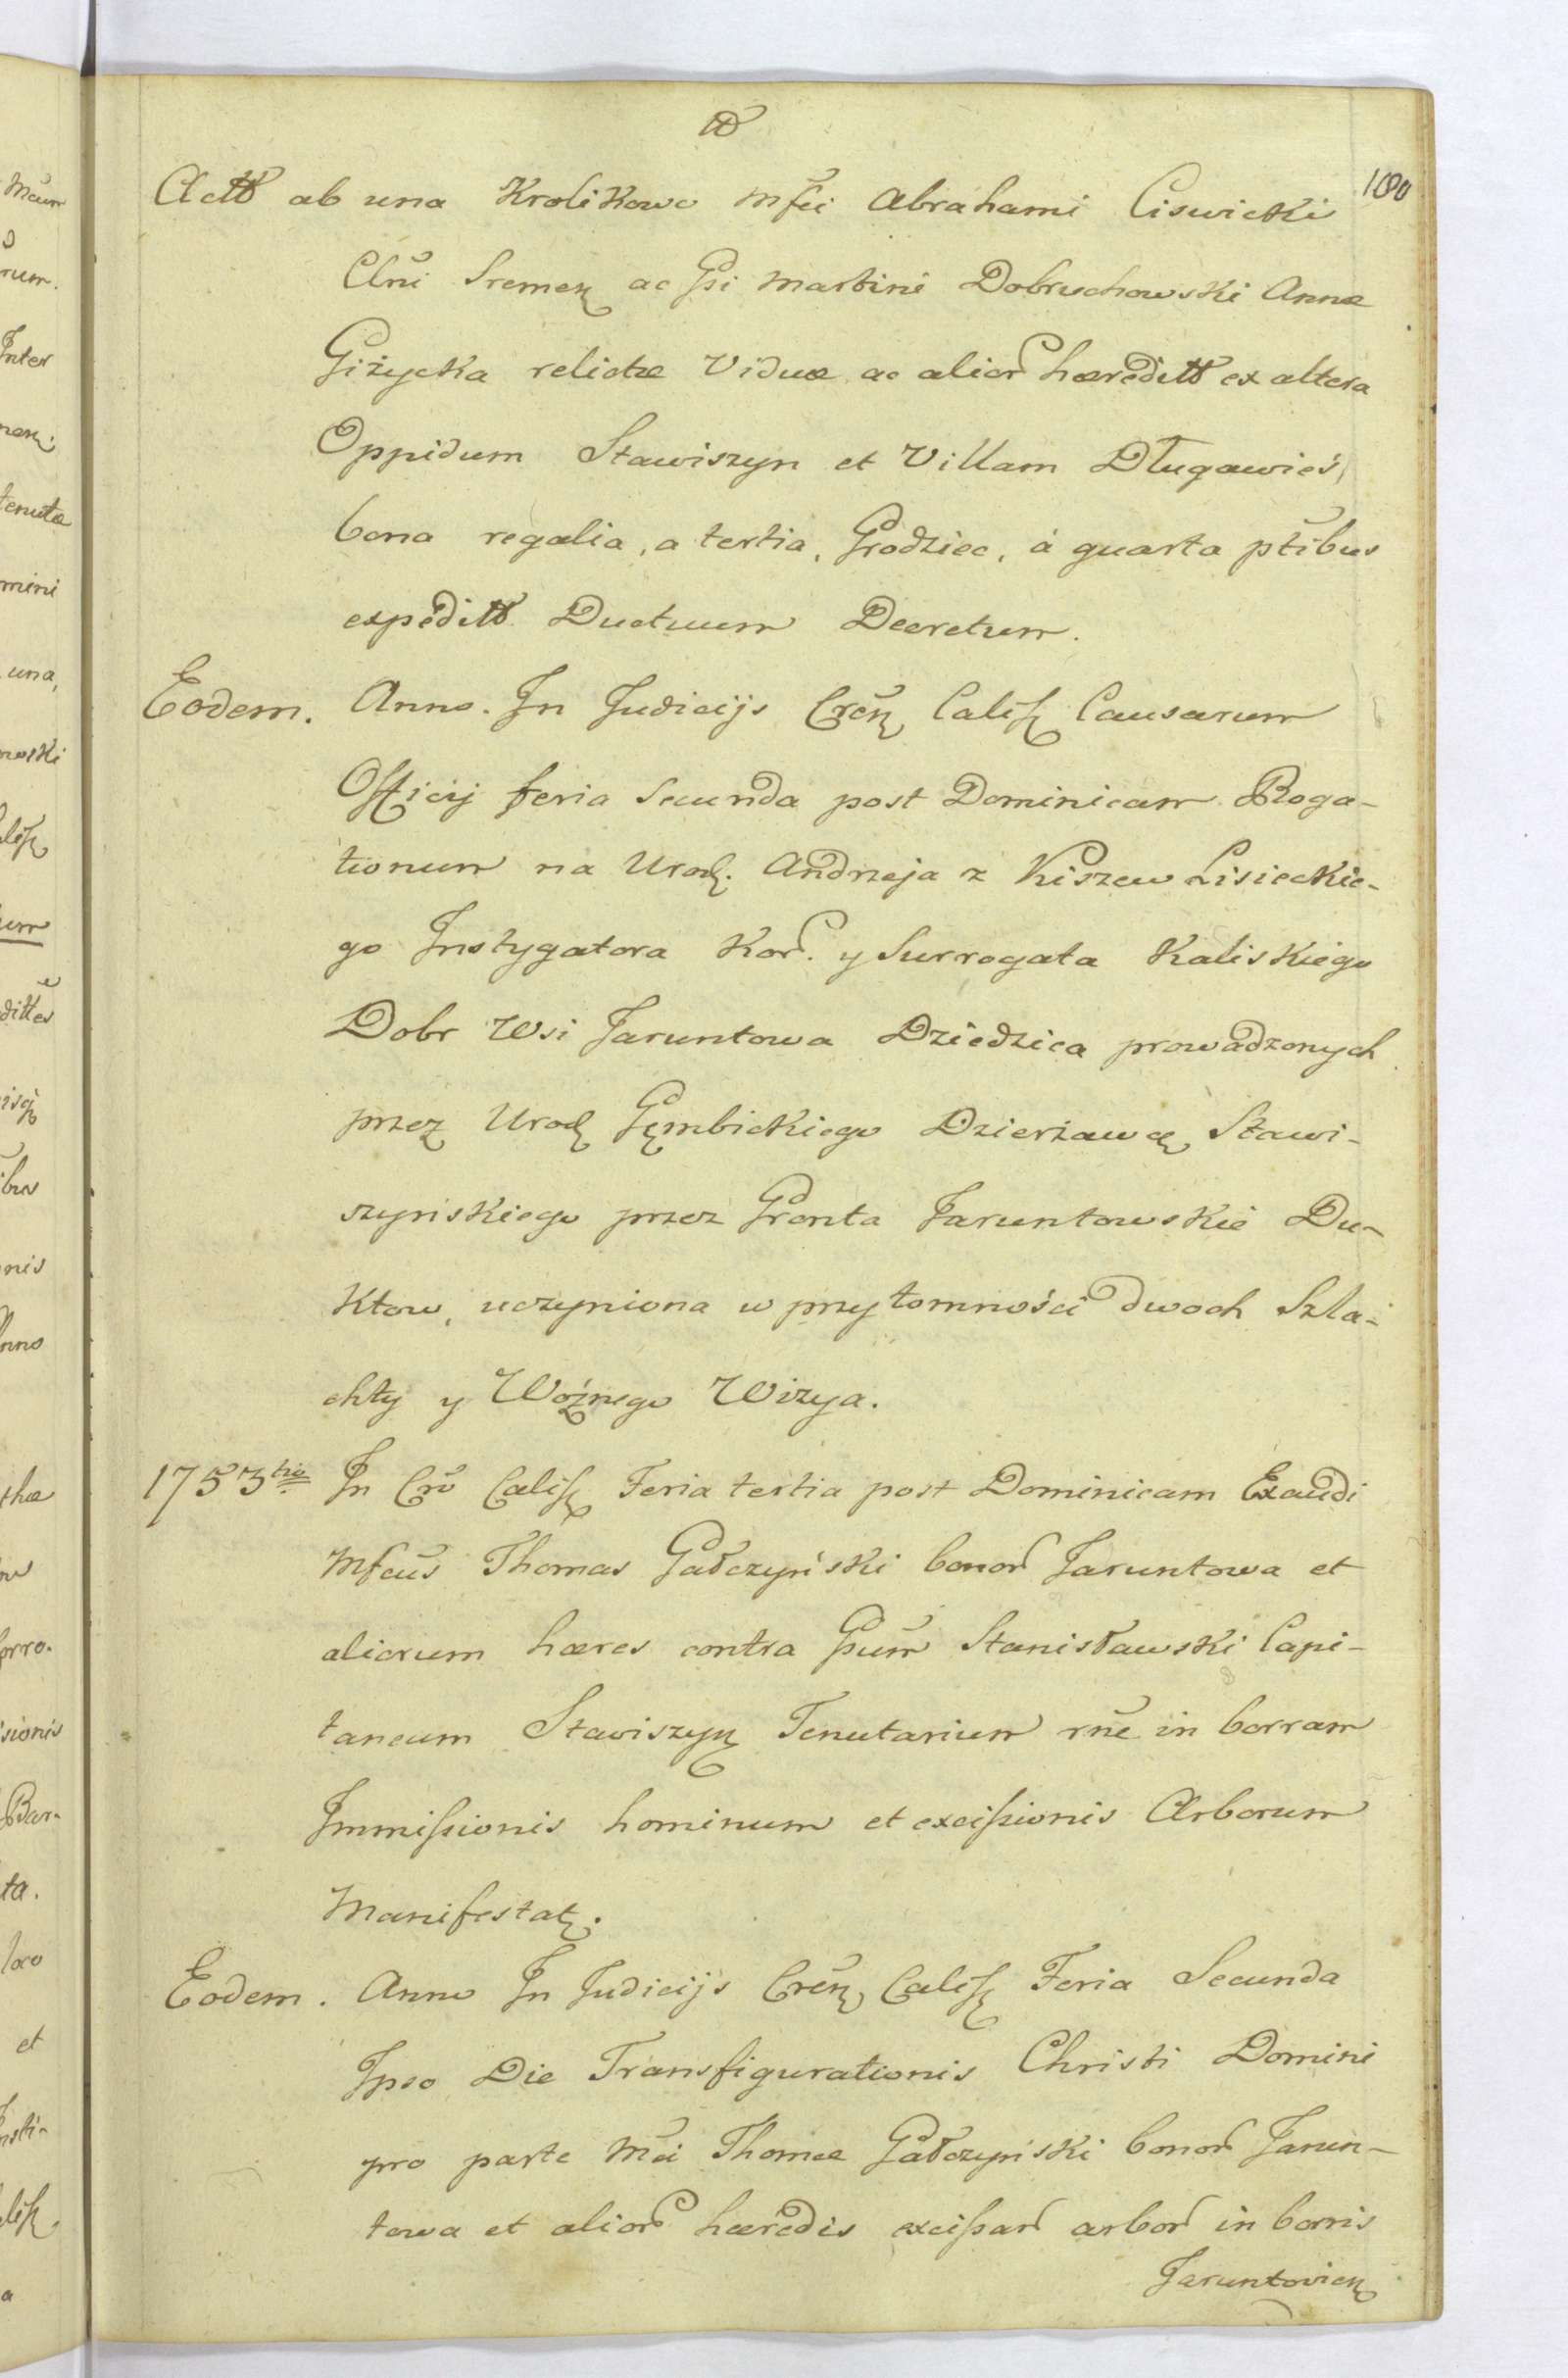 100
Actt ab una Krolikowo Mfci Abrahami Ciswicki
Clni Sremen ac Gsi Martini Dobruchowski Annæ
Giżycka relictæ Viduæ ac alior hæreditt ex altera
Oppidum Stawiszyn et Villam Długawieś,
bona regalia, a tertia, Grodziec, à quarta ptibus
expeditt Ductuum Decretum.
Eodem. Anno. In Judicijs Cren Calis Causarum
Officij feria Secunda post Dominicam Roga-
tionum na Urod. Andrzeja z Kiszew Lisieckie-
go Instygatora Kor. y Surrogata Kaliskiego
Dobr Wsi Jaruntowa Dziedzica prowadzonych
przez Urod Gęmbickiego Dzierżawcę Stawi-
szyńskiego przez Gronta Jaruntowskie Du-
ktow, uczyniona w przytomności dwoch Szla-
chty y Woźnego Wizya.
1753tio In Cro Calis Feria tertia post Dominicam Exaudi
Mfcus Thomas Gałczyński bonor Jaruntowa et
aliorum hæres contra Gsum Stanisławski Capi-
taneum Stawiszyn Tenutarium rne in borram
Immissionis hominum et excissionis Arborum
Manifestat.
Eodem. Anno In Judicijs Cren Calis Feria Secunda
Ipso Die Transfigurationis Christi Domini
pro parte Mci Thomæ Gałczyński bonor Jarun-
towa et alior hæredis excissar arbor in borris
Jaruntovien